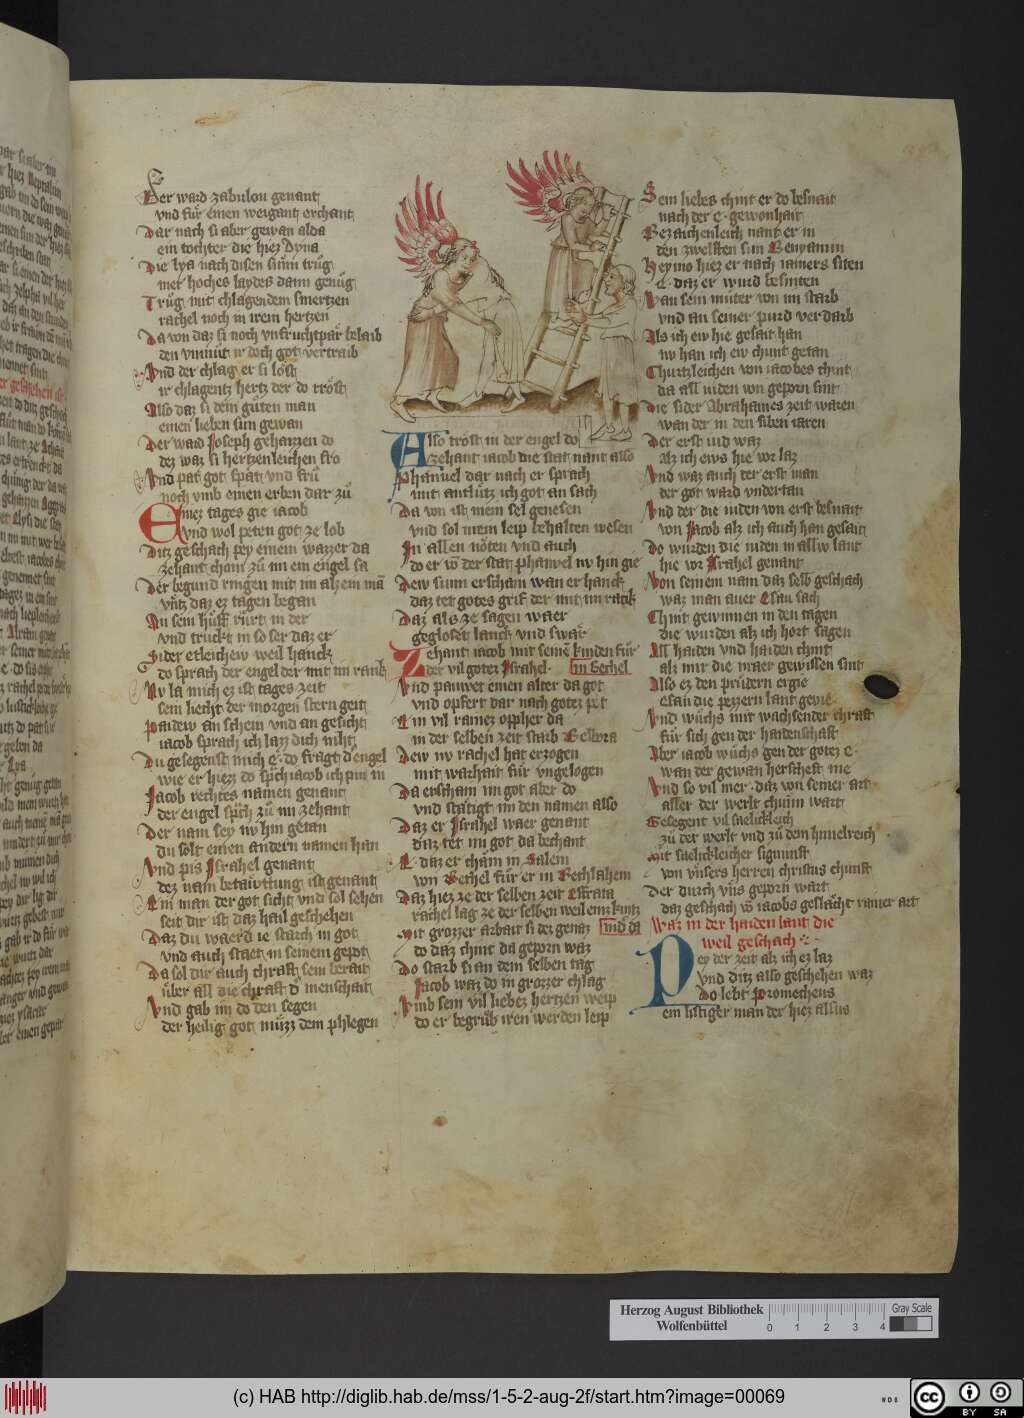 Der ward zabulon genant
vnd für einen weigant erchant
Dar nach si aber gewan alda
ein tochter die hiez Dyna
Die lya nach disen sünn trůg
mer hoches laydes dann genůg
Trůg mit chlagendem smertzen
rachel noch in irem hertzen
Da von daz si noch vnfruchtpär belaib
den vnmůt ir doch got vertraib
Vnd der chlag er si lost
ir chlagentz hertz der do tröst
Also daz si dem gůten man
einen lieben sun gewan
Der ward Joseph gehaizzen do
dez waz si hertzenleichen fro
Vnd pat got spät vnd frů
noch vmb einen erben dar zů
Einez tages gie iacob
vnd wol peten got ze lob
Ditz geschach pey einem wazzer da
zehant chom zů im ein engel sa
Der begund ringen mit im alz ein mā
vntz daz ez tagen began
An sein hůff růrt in der
vnd truckt in so ser daz er
Sider etleichew weil hanck
do sprach der engel der mit im ranck
Nv la mich ez ist tages zeit
sein liecht der morgen stern geit
Paidew an schein vnd an gesicht
iacob sprach ich lazz dich niht
Du gesegenst mich e do fragt d engel
wie er hiezz do spch iacob ich pin in
Jacob rechtes namen genant
der engel spch zů im zehant
Der nam sey nv hin getan
du solt einen andern namen han
Vnd pis Israhel genant
dez nam betäwttung ist genant
Ein man der got sicht vnd sol sehen
seit dir ist daz hail geschehen
Daz du waerd ie starch in got
vnd auch staet in seinem gepot
Da sol dir auch chrafft sein berait
über all die chrafft d menschait
Vnd gab im do den segen
der heilig got müzz dem phlegen
Also tröst in der engel do
zehant iacob die stat nant also
Phanuel dar nach er sprach
mit antlütz ich got an sach
Da von ist mein sel genesen
vnd sol mein leip behalten wesen
In allen nöten vnd auch
do er vō der stat phanuel nv hin gie
Dew sunn erschain wan er hanck
daz tet gotes grif der mit im ranck
Daz als ze sagen waer
gegloset lanck vnd swär
Zehant iacob mit seinē kinden für
der vil gotez Israhel in Bechel
Vnd pauwet einen alter da got
vnd opfert dar nach gotez pet
Ein vil rainez oppher da
in der selben zeit starb Delbora
Dew nv rachel hat erzogen
mit warhait für vngelogen
Da erschain im got aber do
vnd stätigt im den namen also
Daz er Israhel waer genant
daz tet im got da bechant
E daz er cham in Salem
von Bechel für er in Bechlahem
Daz hiez ze der selben zeit Effrata
rachel lag ze der selben weil einz kintz
Mit grozzer arbait si dez genaz ind da
do daz chint da geporn waz
Do starb si an dem selben tag
Jacob waz do in grozzer chlag
Vmb sein vil liebez hertzen weip
do er begrůb iren werden leip
Sein liebes chint er do besnait
nach der e gewonhait
Bezaichenleich nant er in
den zwelften sun Benyamin
Heymo hiez er nach iamers siten
e daz er wurd besniten
Wan sein můter von im starb
vnd an seiner purd verdarb
Als ich ew hie gesait han
nv han ich ew chunt getan
Churtzleichen von iacobes chint
da all iuden von geporn sint
Die sider Abrahames zeit waren
wan der in den siben iaren
Der erst iud waz
alz ich ews hie vor laz
Vnd waz auch der erst man
der got ward vndertan
Vnd der die iuden von erst besnait
von Jacob alz ich auch han gesait
Do wurden die iuden in allw lant
hie vor Israhel genant
Von seinem nam daz selb geschach
waz man auer Esau sach
Chint gewinnen in den tagen
die wurden alz ich hort sagen
All haiden vnd haiden chint
alz mir die maer gewissen sint
Also ez den prüdern ergie
Esau die pezzern lant gevie
Vnd wůchs mit wachsender chraft
für sich gen der haidenschaft
Aber iacob wůchs gen der gotez e
wan der gewan herscheft me
Vnd so vil mer daz von seiner art
aller der werlt chünn wart
Gesegent vil saelickleich
zů der werlt vnd zů dem himelreich
Mit saelickleicher signunft
von vnsers herren christus chunft
Der durch vns geporn wart
daz geschach vō iacobs geslächt rainer art
Waz in der haiden lant die
weil geschach
Pey der zeit alz ich ez laz
vnd ditz also geschehen waz
Do lebt Promecheus
ein listiger man der hiez allus
Herzog August Bibliothek
Wolfenbüttel
0 1 2 3 4
Gray Scale
(c) HAB http://diglib.hab.de/mss/1-5-2-aug-2f/start.htm?image=00069
cc BY SA